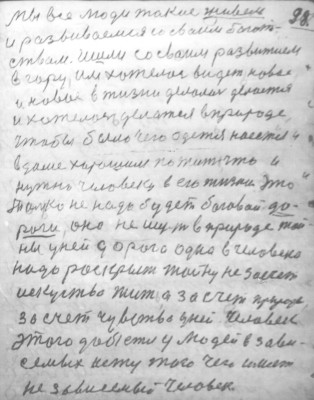 98.
мы все люди такие живем
и развиваемся со своим богат-
ствам. Шли со своим развитием
в гору, им хотелось видеть новое
и новое в жизни делалось делается
и хотелось делается в природе,
чтобы было чего одется наестся и
в доме хорошим пожит это и
нужно человеку в его жизни это
Только не надо будет боговой до-
роги, она не идут в природе тай
ны у ней дорога одна в человека
надо роскрыт тайну не засчет
искуство жит, а за счет природе,
за счет чувство у ней. Человек
этого добется у людей в зави-
семых нету того чего имеет
не зависемый человек